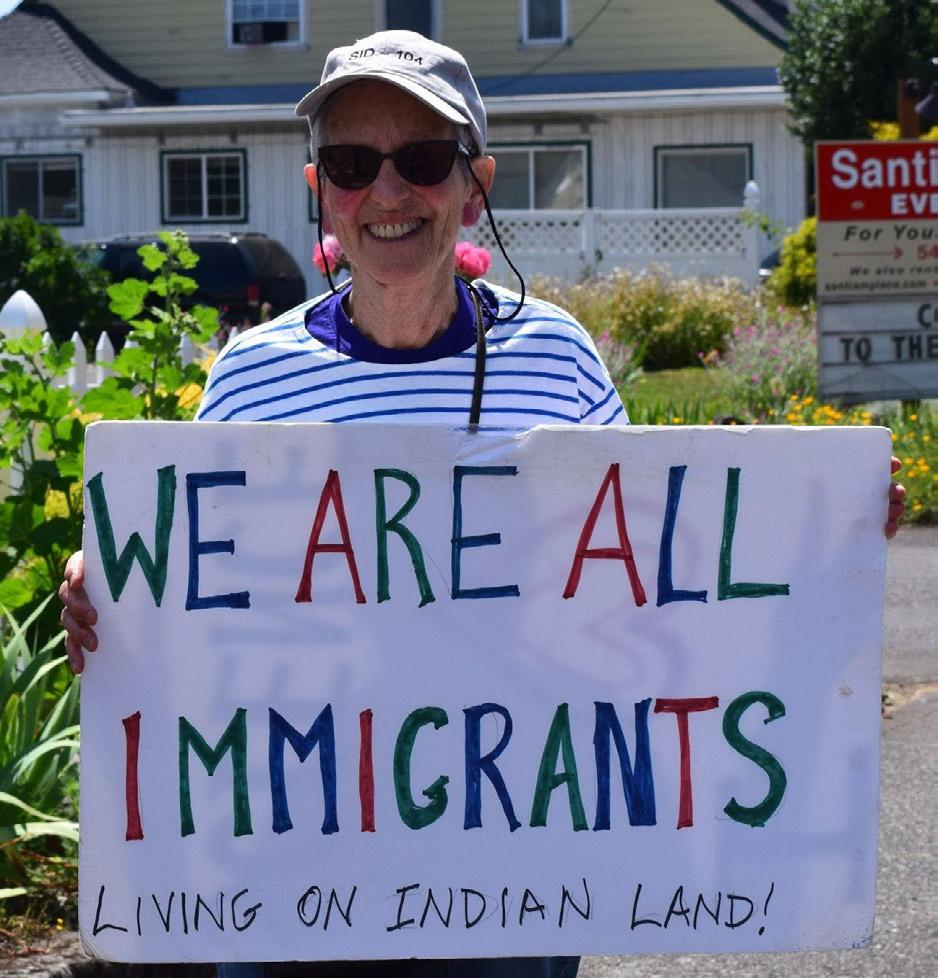 SID 104
WE ARE ALL
IMMIGRANTS
LIVING ON INDIAN LAND!
Santi
EVE
For You
54
We also rent
santiamplace.com
TO THE